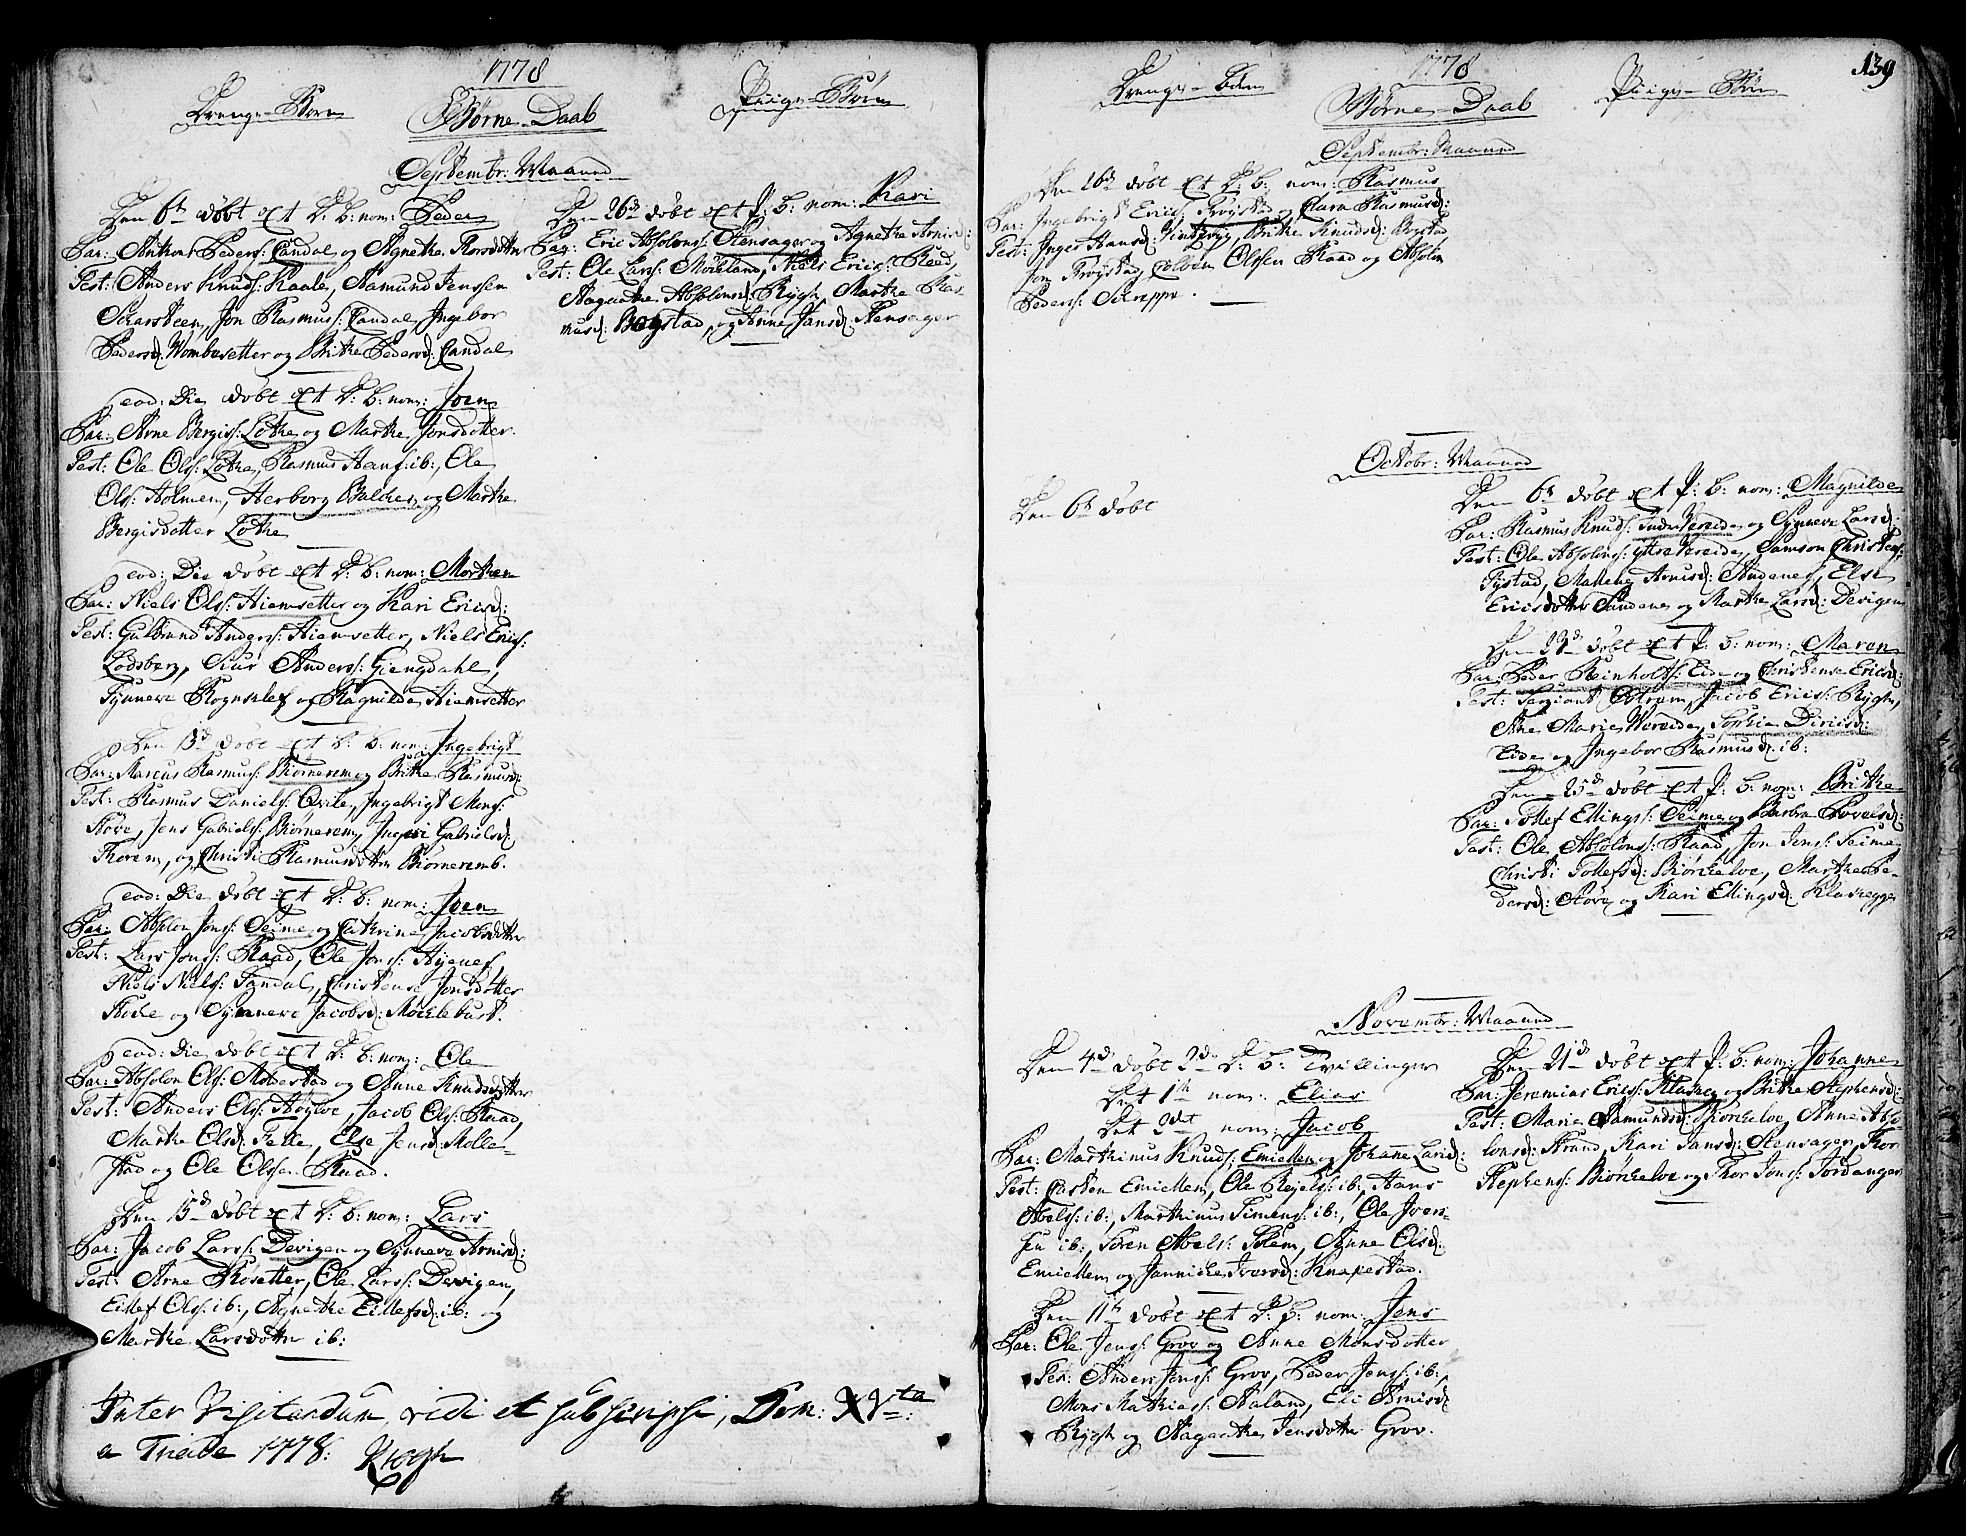 1778
Drenge-Børn
Børne-Daab
Piige-Børn
Septembr: Maaned
Den 6te døbt et D: b: nom: Peder
Par: Anthon Peders: Candal og Agnethe Thorsdotter
Test: Anders Knuds: Kaale, Aamund Jenssen
Scharsteen, Jon Rasmus: Candal, Ingebor
Pedersd: Wombesetter og Brithe Pedersd: Candal
eod: Die døbt et D: b: nom: Joen
Par: Arne Bergis: Lothe og Marthe Jonsdotter.
Test: Ole Ols: Lothe, Rasmus Hans: ib:, Ole
Ols: Holmen, Herborg Balche og Marthe
Bergisdotter Lothe
eod: Die døbt et D: b: nom: Morthen
Par: Niels Ols: Hiemsetter og Kari Ericsd:
Test: Gulbrand Anders: Hiemsetter, Niels Erics:
Lødsberg, Siur Anders: Giengdahl,
Synneve Rognalef og Ragnilde Hiemsetter
Den 13d døbt et D: b: nom: Ingebrigt
Par: Marcus Rasmus: Biørnerem og Brithe Rasmusd:
Test: Rasmus Daniels: Qvile, Ingebrigt Mons:
Støve, Jens Gabriels: Biørnerem, Ingeri Gabrielsd:
Thorem, og Christi Rasmusdotter Biørneremb.
eod: Die døbt et D: b: nom: Joen
Par: Absolon Jons: Seime og Cathrine Jacobsdotter
Test: Lars Jons: Raad, Ole Jons: Hyenes,
Niels Niels: Sandal, Christense Jonsdotter
Støve og Synneve Jacobsd: Møchlebust.
eod: Die døbt et D: b: nom: Ole
Par: Absolon Ols: Mollestad og Anne Knudsdotter
Test: Anders Ols: Høyloe, Jacob Ols: Raad,
Marthe Olsd: Felle, Else Jensd: Molle-
stad og Ole Olsen Raad.
Den 15d døbt et D: b: nom: Lars
Par: Jacob Lars: Devigen og Synneve Arnisd:
Test: Arne Rosetter, Ole Lars: Devigen,
Eillef Ols: ib:, Agnethe Eillefsd: ib: og
Marthe Larsdotter ib:
Inter Visitandum vidi et subscripsi, Dom: XVta
a Triade 1778. Krogh
Den 26d døbt et P: b: nom: Kari
Par: Eric Absolons: Stensager og Agnethe Arnisd:
Test: Ole Lars: Møchland, Niels Erics: Reed,
Aagaathe Absolonsd: Rygh, Marthe Ras
musd: Bogstad, og Anne Jansd: Stensager
1778
139
Drenge-Børn
Børne-Daab
Piige-Børn
Septembr: Maaned
Den 26d døbt et D: b: nom: Rasmus
Par: Ingebrigt Erics: Frøystad og Clara Rasmusd:
Test: Inger Hansd: Brithe Knudsd: Bogstad
Jon Frøystad, Olsen Raad og Absolon
Peders: Scheppe.
Octobr: Maaned
Den 6te døbt
Den 6te døbt et P: b: nom: Magnilde
Par: Rasmus Knuds: Indre Vereide og Synneve Larsd:
Test: Ole Absolons: yttre Vereide, Samson Christens:
Systad, Mallene Arnisd: Andenes, Else
Ericsdotter Sandene og Marthe Larsd: Devigen
Den 23d døbt et P: b: nom: Maren
Par: Peder Reinholts: Eide og Christense Ericsd:
Test: Sergiant Østrem, Jacob Erics: Rygh,
Ane Marie Wereide, Sophie Diricsd:
Eide og Ingebor Rasmusd: ib:
Den 25d døbt et P: b: nom: Brithe
Par: Tollef Ellings: Seime og Barbra Povelsd:
Test: Ole Absolons: Raad, Jon Jens: Seime,
Christi Tollefsd: Biørchloe, Marthe Pe-
dersd: Støve og Kari Ellingsd: Klachegge
Novembr: Maaned
Den 4d døbt 2de D: b: Tvillinger
Det 1te nom: Elias
Det 2det nom: Jacob
Par: Marthinus Knuds: Emiellem og Johanne Larsd:
Test: Casten Emiellem, Ole Rejels: ib:, Hans
Abels: ib:, Marthinus Simens: ib:, Ole Iver-
sen ib:, Søren Abels: Solem, Anne Olsd:
Emiellem og Jannicke Iversd: Knapestad.
Den 11te døbt et D: b: nom: Jens
Par: Ole Jens: Grov og Anne Monsdotter
Test: Anders Jens: Grov, Peder Jens: ib:,
Mons Mathias: Aaland, Eli Arnisd:
Rygh og Aagaathe Jensdotter Grov.
Den 21d døbt et P: b: nom: Johanne
Par: Jeremias Erics: Klache og Brithe Stephensd:
Test: Marie Samundsd: Biørchloe, Anne Abso
lonsd: Strand, Kari Jansd: Stensager, Thor
Stephens: Biørchloe og Thor Jons: Jordanger